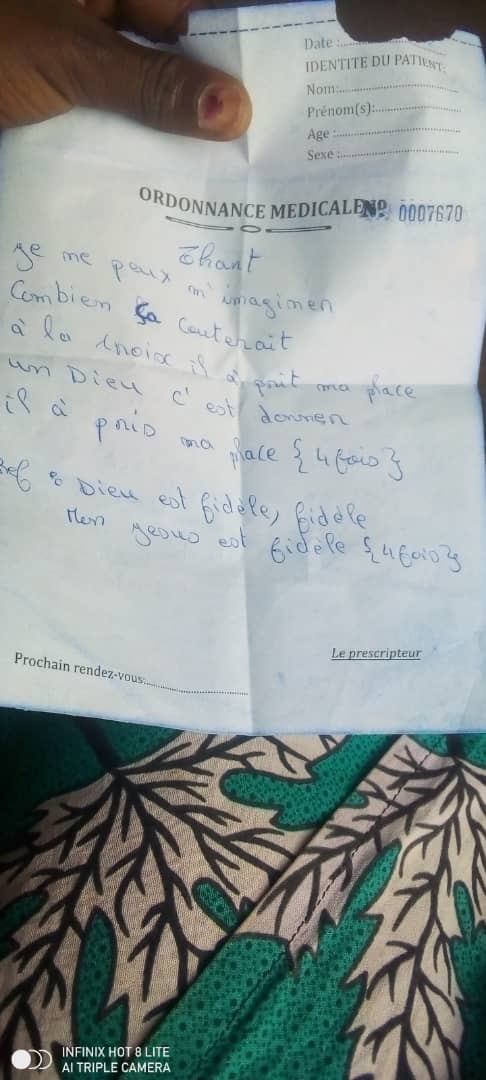 Date :
IDENTITE DU PATIENT:
Nom:
Prénom(s):
Age :
Sexe :
ORDONNANCE MEDICALE Nº 0007670
Chant
Je me peux m'imaginen
Combien ça couterait
à la cnoix il à prit ma place
un Dieu c'est donnen
il à pnis ma place {4 fois}
Ref : Dieu est fidèle, fidèle
Mon Jesus est fidèle {4 fois}
Le prescripteur
Prochain rendez-vous:
INFINIX HOT 8 LITE
AI TRIPLE CAMERA